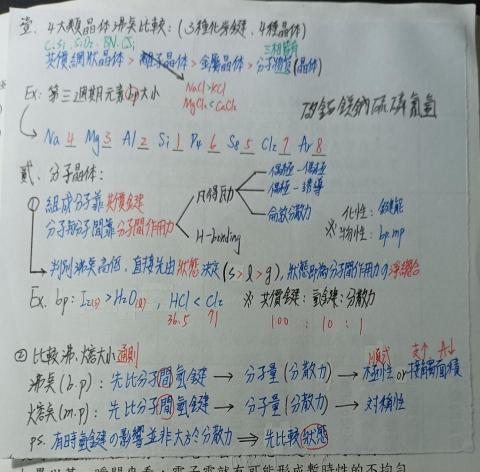 壹. 4大類晶體沸點比較:(3種化學鍵,4種晶體)
C.Si.SiO2.BN.CSi 三相皆有
共價網狀晶體>離子晶體>金屬晶體>分子物質(晶體)
NaCl>KCl
MgCl2<CaCl2
Ex:第三週期元素bp大小
矽鋁鎂鈉硫磷氯氬
Na 4 Mg 3 Al 2 Si 1 P4 6 S8 5 Cl2 7 Ar 8
貳. 分子晶體:
① 組成分子靠共價鍵
分子和分子間靠分子間作用力
凡得瓦力
偶極-偶極
偶極-誘導
分散力
H-bonding
※ 化性:鍵能
物性:bp.mp
判別沸點高低,直接先由狀態決定(s>l>g),狀態即為分子間作用力の淨總合
Ex. bp:I2(s)>H2O(l),HCl<Cl2 ※共價鍵:氫鍵:分散力
36.5 71 100 : 10 : 1
② 比較沸.熔點大小通則
順式 支个 A↓
沸點(b.p):先比分子間氫鍵→分子量(分散力)→極性or接觸面積
熔點(m.p):先比分子間氫鍵→分子量(分散力)→對稱性
ps. 有時氫鍵の影響並非大於分散力⇒先比較狀態